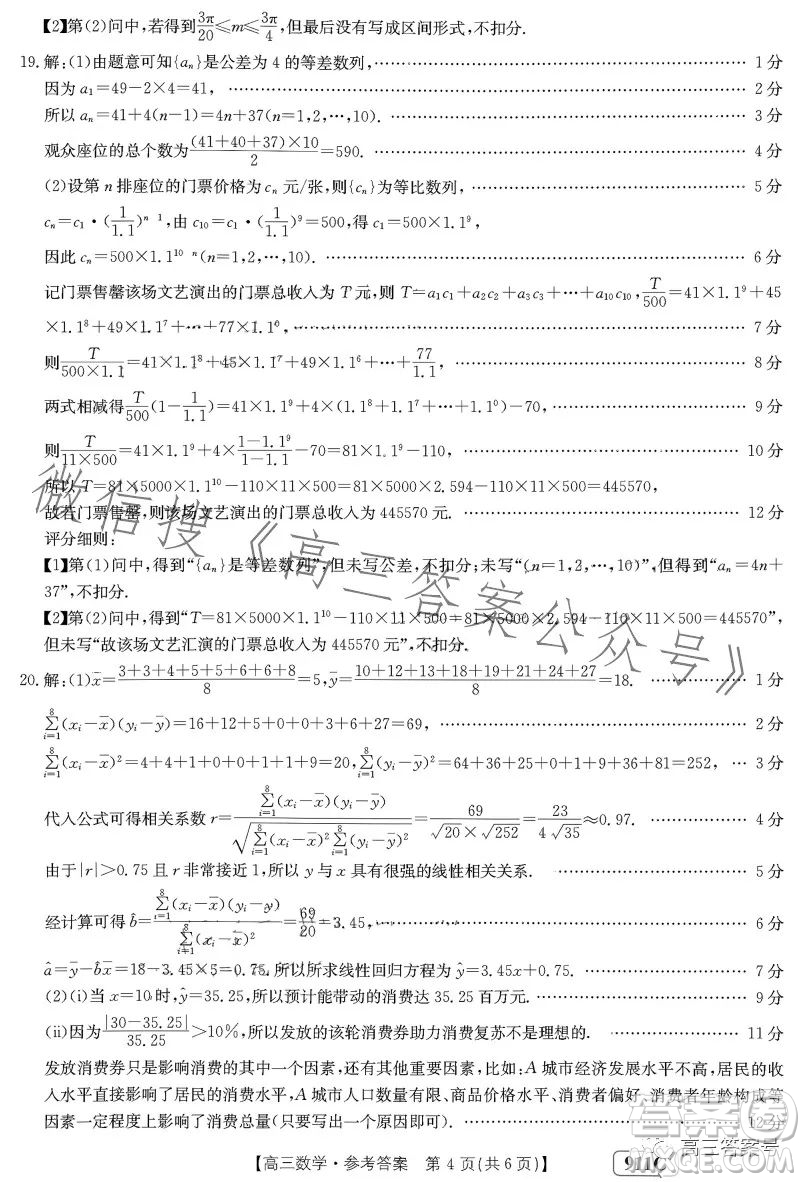 【2】第(2)问中,若得到3π/20≤m≤3π/4,但最后没有写成区间形式,不扣分.
19.解:(1)由题意可知{aₙ}是公差为4的等差数列,…… 1分
因为a₁=49-2×4=41,…… 2分
所以aₙ=41+4(n-1)=4n+37(n=1,2,…,10).…… 3分
观众座位的总个数为(41+40+37)×10/2=590.…… 4分
(2)设第n排座位的门票价格为cₙ元/张,则{cₙ}为等比数列,…… 5分
cₙ=c₁·(1/1.1)ⁿ ¹,由c₁₀=c₁·(1/1.1)⁹=500,得c₁=500×1.1⁹,
因此cₙ=500×1.1¹⁰ ⁿ(n=1,2,…,10).…… 6分
记门票售罄该场文艺演出的门票总收入为T元,则T=a₁c₁+a₂c₂+a₃c₃+…+a₁₀c₁₀,T/500=41×1.1⁹+45
×1.1⁸+49×1.1⁷+…+77×1.1⁰,…… 7分
则T/(500×1.1)=41×1.1⁸+45×1.1⁷+49×1.1⁶+…+77/1.1,…… 8分
两式相减得T/500(1-1/1.1)=41×1.1⁹+4×(1.1⁸+1.1⁷+…+1.1⁰)-70,…… 9分
则T/(11×500)=41×1.1⁹+4×(1-1.1⁹)/(1-1.1)-70=81×1.1⁹-110,…… 10分
所以T=81×5000×1.1¹⁰-110×11×500=81×5000×2.594-110×11×500=445570,
故若门票售罄,则该场文艺演出的门票总收入为445570元.…… 12分
评分细则:
【1】第(1)问中,得到“{aₙ}是等差数列”,但未写公差,不扣分;未写“(n=1,2,…,10)”,但得到“aₙ=4n+
37”,不扣分.
【2】第(2)问中,得到“T=81×5000×1.1¹⁰-110×11×500=81×5000×2.594-110×11×500=445570”,
但未写“故该场文艺汇演的门票总收入为445570元”,不扣分.
20.解:(1)x̄=(3+3+4+5+5+6+6+8)/8=5,ȳ=(10+12+13+18+19+21+24+27)/8=18.…… 1分
∑ᵢ₌₁⁸(xᵢ-x̄)(yᵢ-ȳ)=16+12+5+0+0+3+6+27=69,…… 2分
∑ᵢ₌₁⁸(xᵢ-x̄)²=4+4+1+0+0+1+1+9=20,∑ᵢ₌₁⁸(yᵢ-ȳ)²=64+36+25+0+1+9+36+81=252,… 3分
代入公式可得相关系数r=∑ᵢ₌₁⁸(xᵢ-x̄)(yᵢ-ȳ)/√(∑ᵢ₌₁⁸(xᵢ-x̄)²∑ᵢ₌₁⁸(yᵢ-ȳ)²)=69/(√20×√252)=23/(4√35)≈0.97.…… 4分
由于|r|>0.75且r非常接近1,所以y与x具有很强的线性相关关系.…… 5分
经计算可得b̂=∑ᵢ₌₁⁸(xᵢ-x̄)(yᵢ-ȳ)/∑ᵢ₌₁⁸(xᵢ-x̄)²=69/20=3.45,…… 6分
â=ȳ-b̂x̄=18-3.45×5=0.75,所以所求线性回归方程为ŷ=3.45x+0.75.…… 7分
(2)(i)当x=10时,ŷ=35.25,所以预计能带动的消费达35.25百万元.…… 9分
(ii)因为|30-35.25|/35.25>10%,所以发放的该轮消费券助力消费复苏不是理想的.…… 11分
发放消费券只是影响消费的其中一个因素,还有其他重要因素,比如:A城市经济发展水平不高,居民的收
入水平直接影响了居民的消费水平,A城市人口数量有限、商品价格水平、消费者偏好、消费者年龄构成等
因素一定程度上影响了消费总量(只要写出一个原因即可).…… 12分
【高三数学·参考答案 第4页(共6页)】
911C
微信搜《高三答案公众号》
高三答案号
答案圈